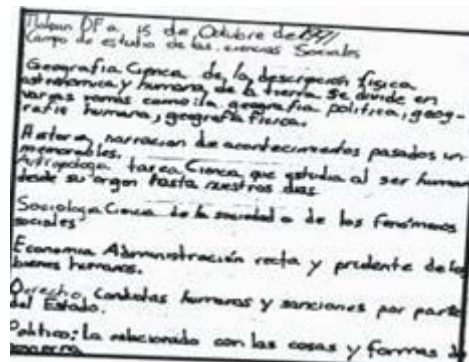 Tlalpan DF a 15 de Octubre de 1991
Campo de estudio de las ciencias Sociales
Geografia Ciencia de la descripción física
astronomica y humana de la tierra se divide en
varias ramas como: la geografia politica, geog-
rafia humana, geografia fisica.
Historia, narracion de acontecimientos pasados
memorables.
Antropologia Ciencia que estudia al ser humano
desde su origen hasta nuestros dias
Sociologia Ciencia de la sociedad o de los fenómenos
sociales
Economia Administración recta y prudente de los
bienes humanos.
Derecho, Conductas humanas y sanciones por parte
del Estado.
Politica: La relacionado con las cosas y formas